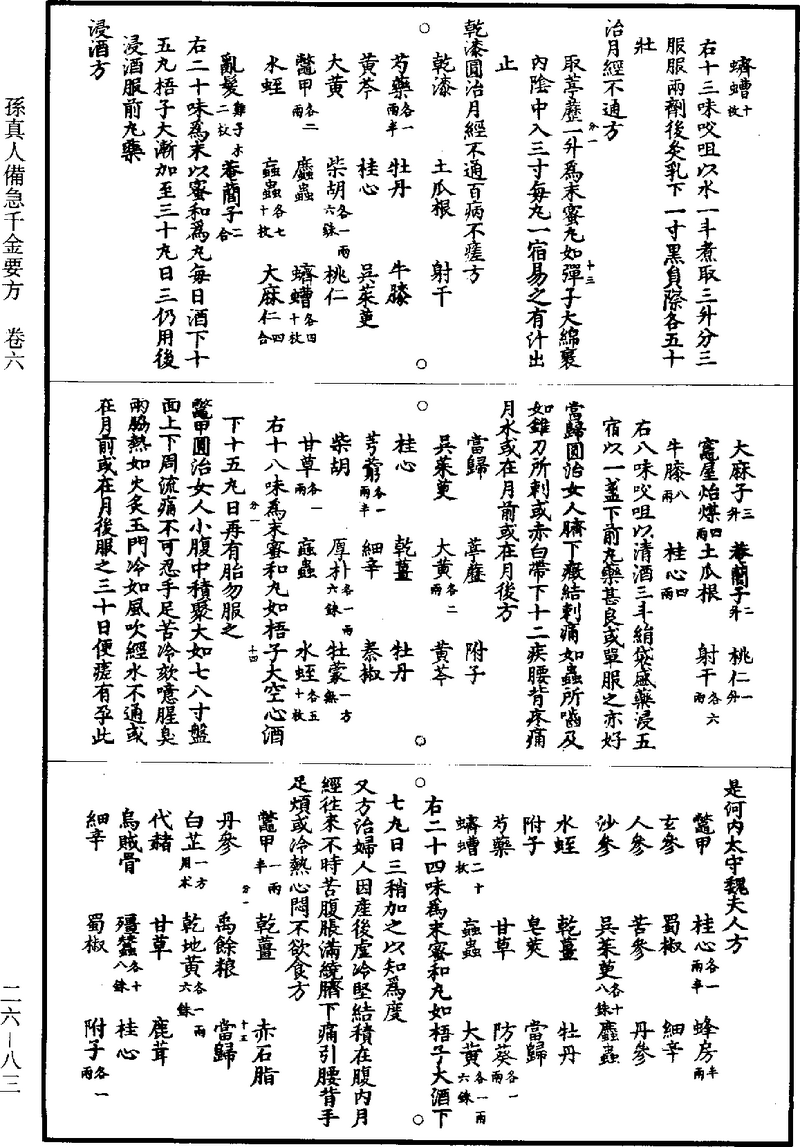 蠐螬十枚
右十三味㕮咀以水一斗煮取三升分三
服服兩劑後灸乳下一寸黑員際各五十
壯
治月經不通方
取葶藶一升爲末蜜丸如彈子大綿裹
內陰中入三寸每丸一宿易之有汁出
止
分一
十三
乾漆圓治月經不通百病不瘥方
乾漆 土瓜根 射干
芍藥各一兩半 牡丹 牛膝
黃芩 桂心 吳茱萸
大黃 柴胡各一兩六銖 桃仁
鱉甲各二兩 䗪蟲 蠐螬各四十枚
水蛭 蝱蟲各七十枚 大麻仁四合
亂髮雞子大二枚 菴䕡子二合
右二十味爲末以蜜和爲丸每日酒下十
五丸梧子大漸加至三十丸日三仍用後
浸酒服前丸藥
浸酒方
大麻子三升 菴䕡子二升 桃仁一升
竈屋炲煤四兩 土瓜根 射干各六兩
牛膝八兩 桂心四兩
右八味㕮咀以清酒三斗絹袋盛藥浸五
宿以一盞下前丸藥甚良或單服之亦好
當歸圓治女人臍下癥結刺痛如蟲所嚙及
如錐刀所刺或赤白帶下十二疾腰背疼痛
月水或在月前或在月後方
當歸 葶藶 附子
吳茱萸 大黃各二兩 黃芩
桂心 乾薑 牡丹
芎藭各一兩半 細辛 秦椒
柴胡 厚朴各一兩六銖 牡蒙一方無
甘草各一兩 蝱蟲 水蛭各五十枚
右十八味爲末蜜和丸如梧子大空心酒
下十五丸日再有胎勿服之
分一
十四
鱉甲圓治女人小腹中積聚大如七八寸盤
面上下周流痛不可忍手足苦冷欬噫腥臭
兩脇熱如火炙玉門冷如風吹經水不通或
在月前或在月後服之三十日便瘥有孕此
是何內太守魏夫人方
鱉甲 桂心各一兩半 蜂房半兩
玄參 蜀椒 細辛
人參 苦參 丹參
沙參 吳茱萸各十八銖 䗪蟲
水蛭 乾薑 牡丹
附子 皂莢 當歸
芍藥 甘草 防葵各一兩
蠐螬二十枚 蝱蟲 大黃各一兩六銖
右二十四味爲末蜜和丸如梧子大酒下
七丸日三稍加之以知爲度
又方治婦人因產後虛冷堅結積在腹內月
經往來不時苦腹脹滿繞臍下痛引腰背手
足煩或冷熱心悶不欲食方
鱉甲一兩半 乾薑 赤石脂
分一
十五
丹參 禹餘粮 當歸
白芷一方用朮 乾地黃各一兩六銖
代赭 甘草 鹿茸
烏賊骨 殭蠶各十八銖 桂心
細辛 蜀椒 附子各一兩
孫真人備急千金要方 卷六
二六—八三